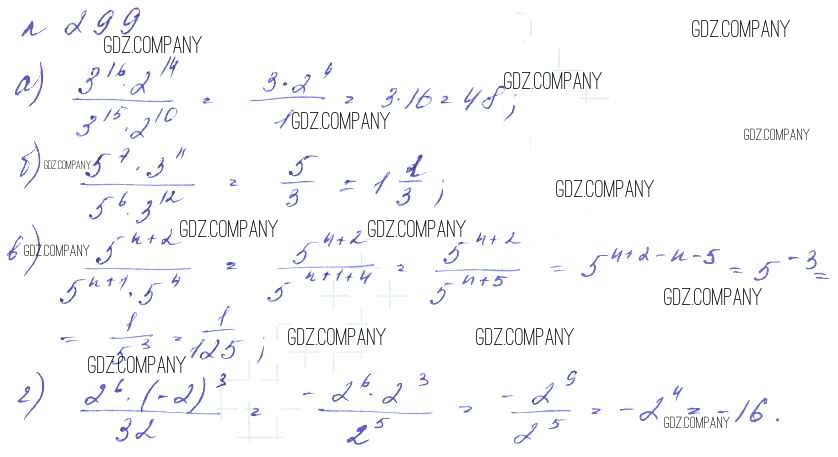 № 299
GDZ.COMPANY GDZ.COMPANY
а) (3^16 · 2^14)/(3^15 · 2^10) = (3 · 2^4)/1 = 3·16 = 48;
GDZ.COMPANY GDZ.COMPANY GDZ.COMPANY
б) (5^7 · 3^11)/(5^6 · 3^12) = 5/3 = 1 2/3;
GDZ.COMPANY GDZ.COMPANY
в) 5^(n+2)/(5^(n+1) · 5^4) = 5^(n+2)/5^(n+1+4) = 5^(n+2)/5^(n+5) = 5^(n+2-n-5) = 5^(-3) =
GDZ.COMPANY GDZ.COMPANY GDZ.COMPANY GDZ.COMPANY
= 1/5^3 = 1/125;
GDZ.COMPANY GDZ.COMPANY GDZ.COMPANY
г) (2^6 · (-2)^3)/32 = (-2^6 · 2^3)/2^5 = (-2^9)/2^5 = -2^4 = -16.
GDZ.COMPANY